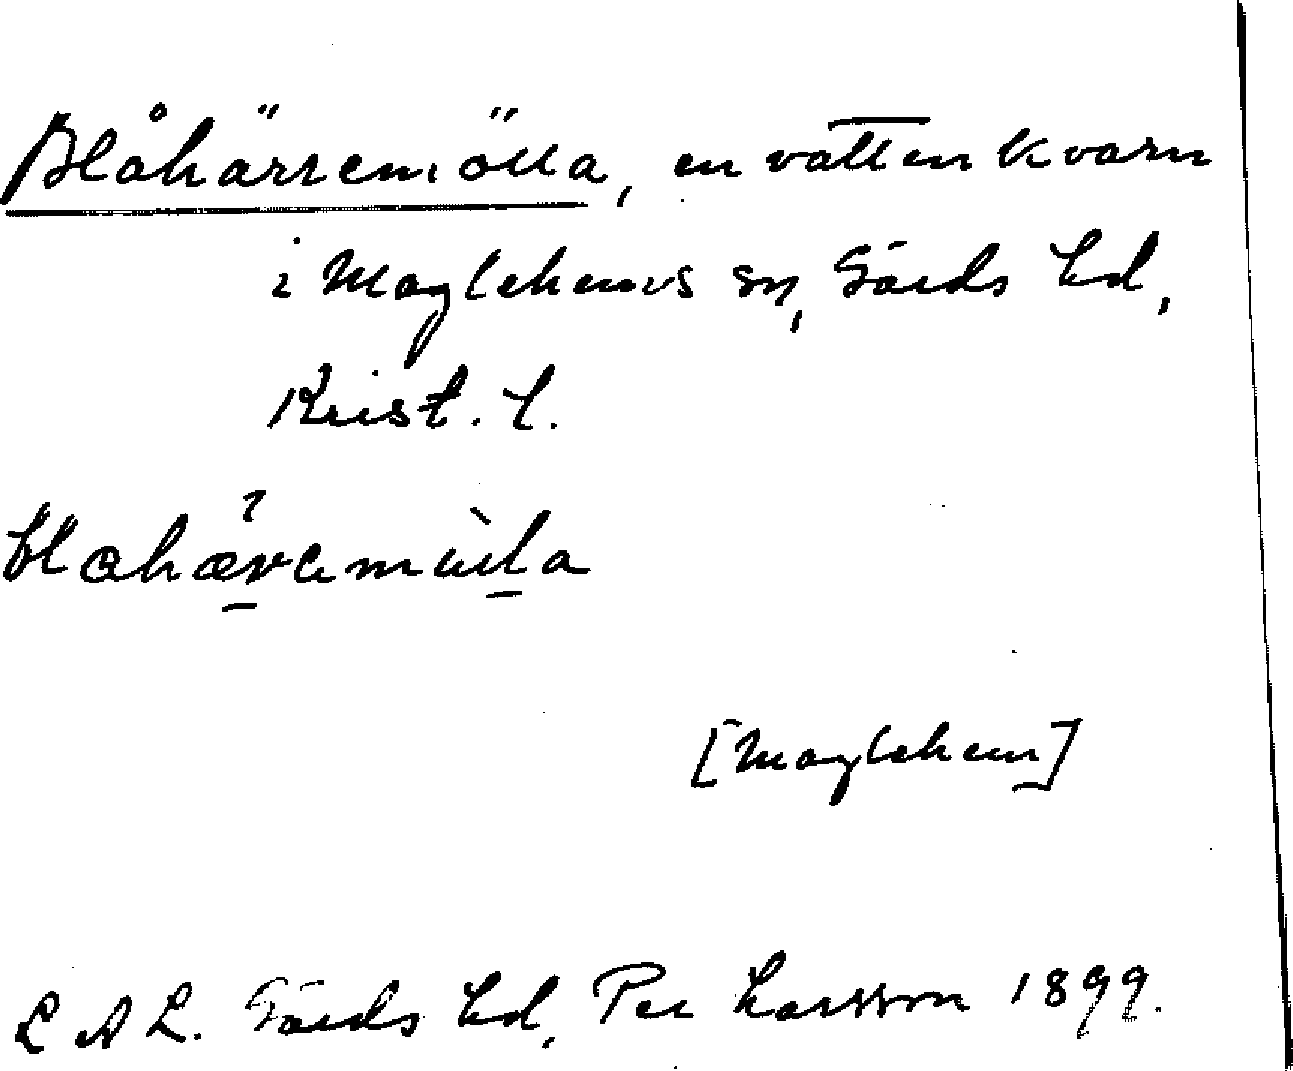 Blåhärremölla, en vattenkvarn
i Maglehems sn, Gärds hd,
Krist. l.
[Maglehem]
L A L. Gärds hd, Per Larsson 1899.